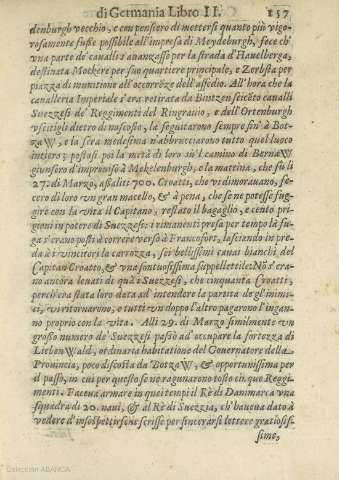 di Germania Libro II. 157
denburgh vecchio, e con pensiero di mettersi quanto più vigo-
rosamente fusse possibile all'impresa di Meydeburgh, fece ch'
vna parte de' caualli s'auanzasse per la strada d'Hauelberga,
destinata Mockere per suo quartiere principale, e Zerbsta per
piazza di munitione all'occorẽze dell'assedio. All'hora che la
caualleria Imperiale s'era retirata da Bintzen seicẽto caualli
Suezzesi de' Reggimenti del Ringrauio, e dell'Ortenburgh
vscitigli dietro di nascosto, la seguitarono sempre fin' à Bot-
zaW, e la sera medesima n'abbrucciarono tutto quel luoco
intiero; postosi poi la metà di loro in'l camino di BernaW
giunsero d'improuiso à Mekelenburgh, e la mattina, che fu li
27. di Marzo, assaliti 700. Croatti, che vi dimorauano, fe-
cero di loro vn gran macello, & à pena, che se ne potesse fug-
gire con la vita il Capitano, restato il bagaglio, e cento pri-
gioni in potere di Suezzesi: i rimanenti presa per tempo la fu-
ga s'erano posti à correre verso à Francfort, lasciando in pre-
da à i vincitori la carrozza, sei bellissimi caual bianchi del
Capitan Croatto, & vna sontuosissima suppellettile: Nõ s'era-
no ancora leuati di quà i Suezzesi, che cinquanta Croatti,
perciò era stata loro data ad'intendere la partita de gl'inimi-
ci, vi ritornarono, e tutti vn doppo l'altro pagarono l'ingan-
no proprio con la vita. Alli 29. di Marzo similmente vn
grosso numero de' Suezzesi passò ad'occupare la fortezza di
LiebenWald, ordinaria habitatione del Gouernatore della
Prouincia, poco discosta da BotzaW, & opportunissima per
il passo, in cui per questo se ne ragunarono tosto cinque Reggi-
menti. Faceua armare in quei tempi il Rè di Danimarca vna
squadra di 20. naui, & al Rè di Suezzia, ch'haueua dato à
vedere d'insospettirsene scrisse per sincerarsi lettere gratiosis-
simo,
Colección ABANCA